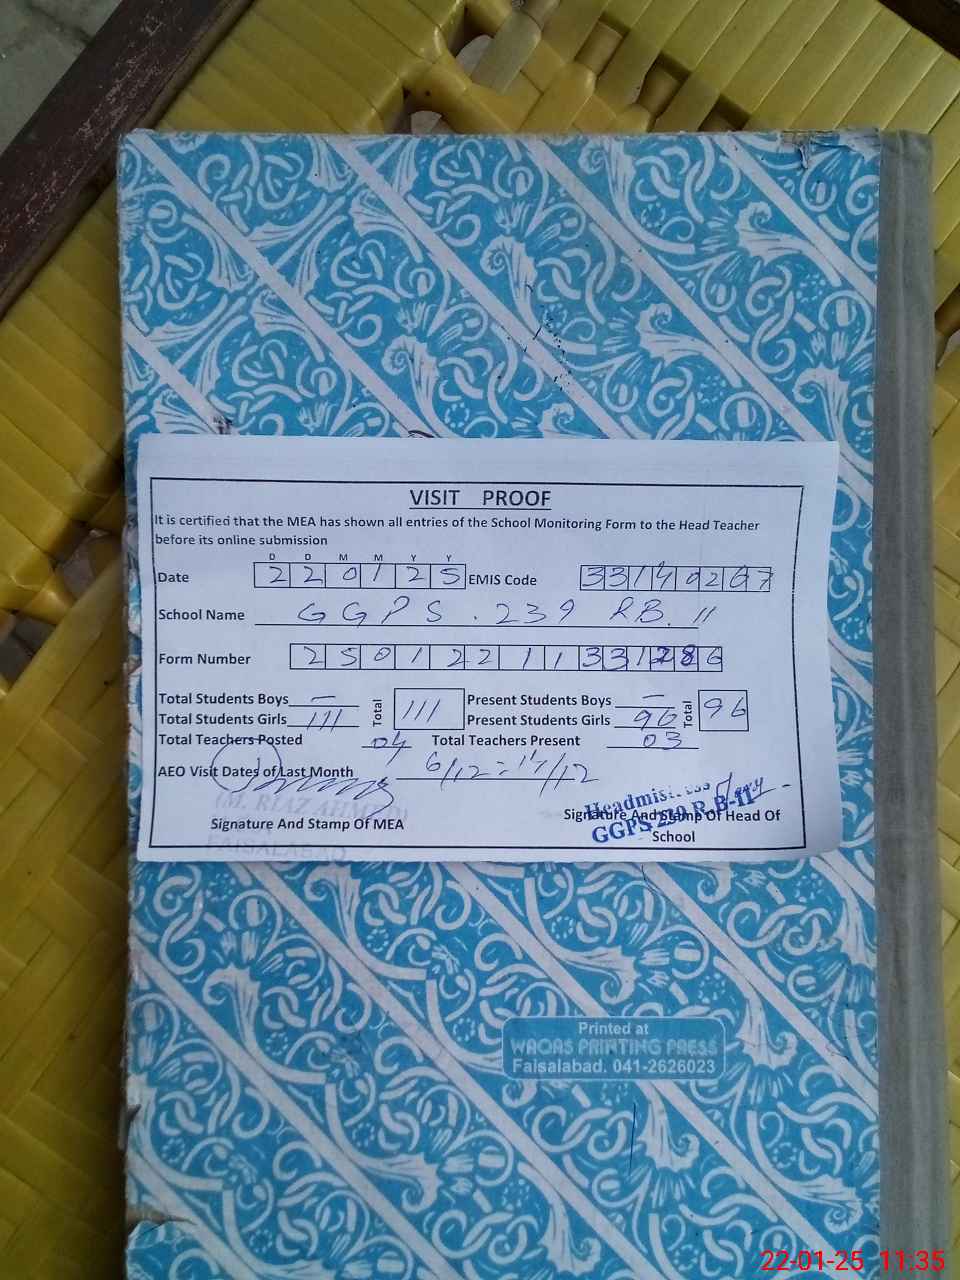 VISIT PROOF
It is certified that the MEA has shown all entries of the School Monitoring Form to the Head Teacher
before its online submission
D D M M Y Y
Date 2 2 0 1 2 5 EMIS Code 3 3 1 4 0 2 6 7
School Name GGPS . 239 RB. II
Form Number 2 5 0 1 2 2 1 1 3 3 1 2 8 6
Total Students Boys — Total 111 Present Students Boys — Total 96
Total Students Girls 111 Present Students Girls 96
Total Teachers Posted 04 Total Teachers Present 03
AEO Visit Dates of Last Month 6/12 = 17/12
(M. RIAZ AHMED)
Signature And Stamp Of MEA
FAISALABAD
Headmistress
GGPS 239 R.B-II
Signature And Stamp Of Head Of
School
Printed at
WAQAS PRINTING PRESS
Faisalabad. 041-2626023
22-01-25 11:35